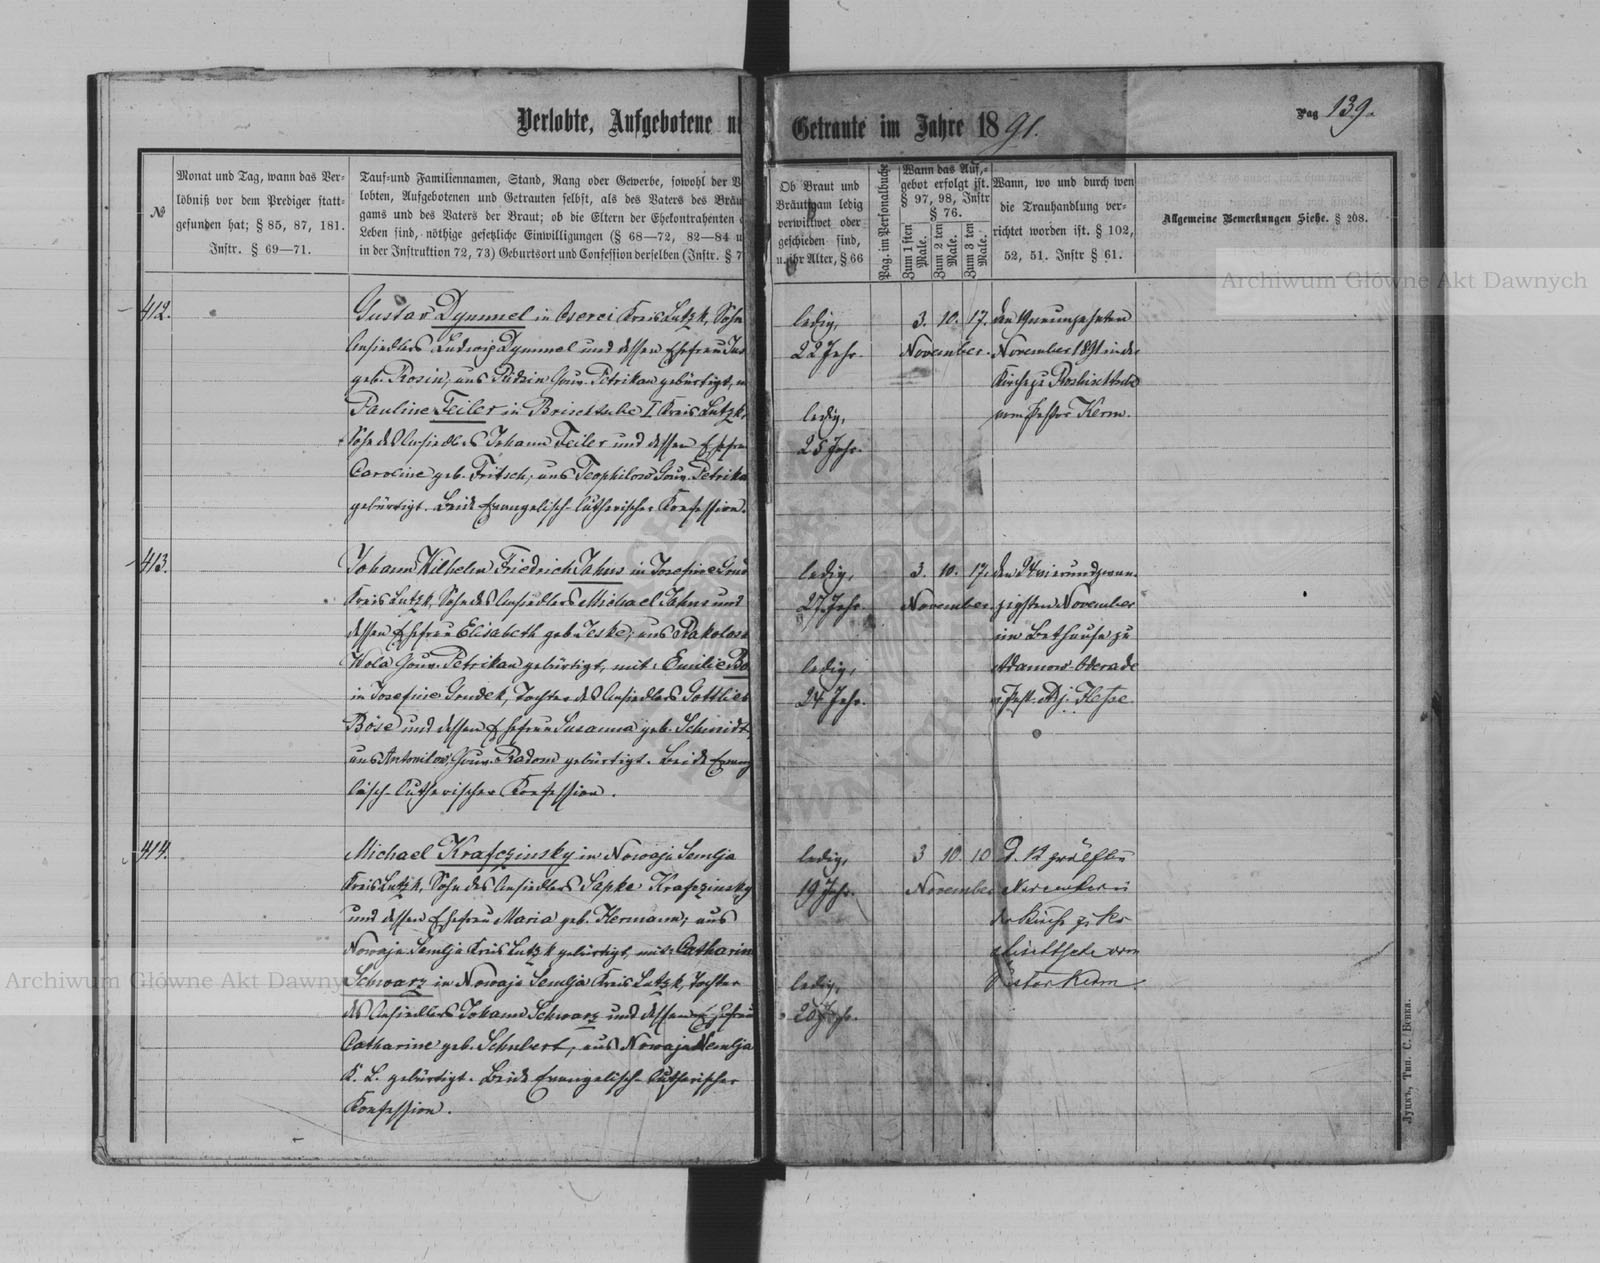 Verlobte, Aufgebotene un
Getraute im Jahre 1891.
Pag 139.
№
Monat und Tag, wann das Ver-
löbniß vor dem Prediger statt-
gefunden hat; § 85, 87, 181.
Instr. § 69—71.
Tauf- und Familiennamen, Stand, Rang oder Gewerbe, sowohl der V
lobten, Aufgebotenen und Getrauten selbst, als des Vaters des Bräu
gams und des Vaters der Braut; ob die Eltern der Ehekontrahenten
Leben sind, nöthige gesetzliche Einwilligungen (§ 68—72, 82—84 u
in der Instruktion 72, 73) Geburtsort und Confession derselben (Instr. § 7
Ob Braut und
Bräutigam ledig
verwittwet oder
geschieden sind,
u. ihr Alter, § 66
Pag. im Personalbuche
Wann das Auf-
gebot erfolgt ist.
§ 97, 98, Instr
§ 76.
Zum 1sten Male.
Zum 2ten Male.
Zum 3ten Male.
Wann, wo und durch wen
die Trauhandlung ver-
richtet worden ist. § 102,
52, 51. Instr § 61.
Allgemeine Bemerkungen Siehe. § 208.
412.
Gustav Dymmel in Oserei Kreis Lutzk, Sohn
Ansiedlers Ludwig Dymmel und dessen Ehefrau
geb. Rosin, aus Gouv. Petrikau gebürtigt,
Pauline Feiler in I Kreis Lutzk,
des Ansiedlers Johann Feiler und dessen Ehefrau
Caroline geb. Fritsch, aus Teophilow Gouv. Petrikau
gebürtigt. Beide Evangelisch-lutherischer Konfession.
ledig,
22 Jahr.
ledig,
25 Jahr.
3. 10. 17.
November.
den Neunzehnten
November 1891 in der
Kirche zu Roshischtsche
vom Pastor Kerm.
413.
Johann Wilhelm Friedrich Jahns in Josefine
Kreis Lutzk, Sohn des Ansiedlers Michael Jahns und
dessen Ehefrau Elisabeth geb. Jeske, aus
Wola Gouv. Petrikau gebürtigt, mit Emilie Bö
in Josefine Grudek, Tochter des Ansiedlers Gottlieb
Böse und dessen Ehefrau Susanna geb. Schmidt,
aus Antonilow Gouv. Radom gebürtigt. Beide Evang
lisch-lutherischer Konfession.
ledig,
27 Jahr.
ledig,
24 Jahr.
3. 10. 17.
November.
den Vierundzwan-
zigsten November
im Bethause zu
Adamow
v. Past. Adj. Hesse.
414.
Michael Krafczinsky in Nowaja Semlja
Kreis Lutzk, Sohn des Ansiedlers Sapke Krafczinsky
und dessen Ehefrau Maria geb. Hermann, aus
Nowaja Semlja Kreis Lutzk gebürtigt, mit Catharin
Schwarz in Nowaja Semlja Kreis Lutzk, Tochter
des Ansiedlers Johann Schwarz und dessen Ehefrau
Catharine geb. Schubert, aus Nowaja Semlja
K. L. gebürtigt. Beide Evangelisch-lutherischer
Konfession.
ledig,
19 Jahr.
ledig,
20 Jahr.
3 10 10
November
D. 12 zwölften
November in
der Kirche z. Ro-
schischtsche vom
Pastor Kerm
Луцкъ, Тип. С. Бенка.
Archiwum Główne Akt Dawnych
Archiwum Główne Akt Dawnych